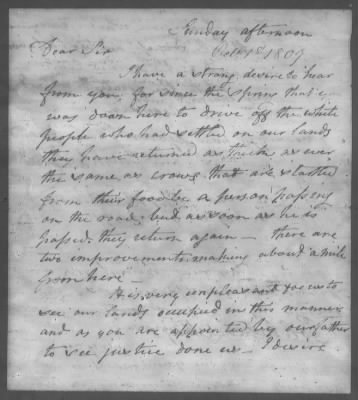 Sunday afternoon
Octr 1st 1809
Dear Sir
I have a strong desire to hear
from you, for since the spring that
was down here to drive off the white
people who had settled on our lands
they have returned as thick as ever
the same as crows that are startled
from their food by a person passing
on the road, but as soon as he is
passed, they return again — there are
two improvements making about a mile
from here —
It is very unpleasant to us to
see our lands occupied in this manner
and as you are appointed by our father
to see justice done us — I desire